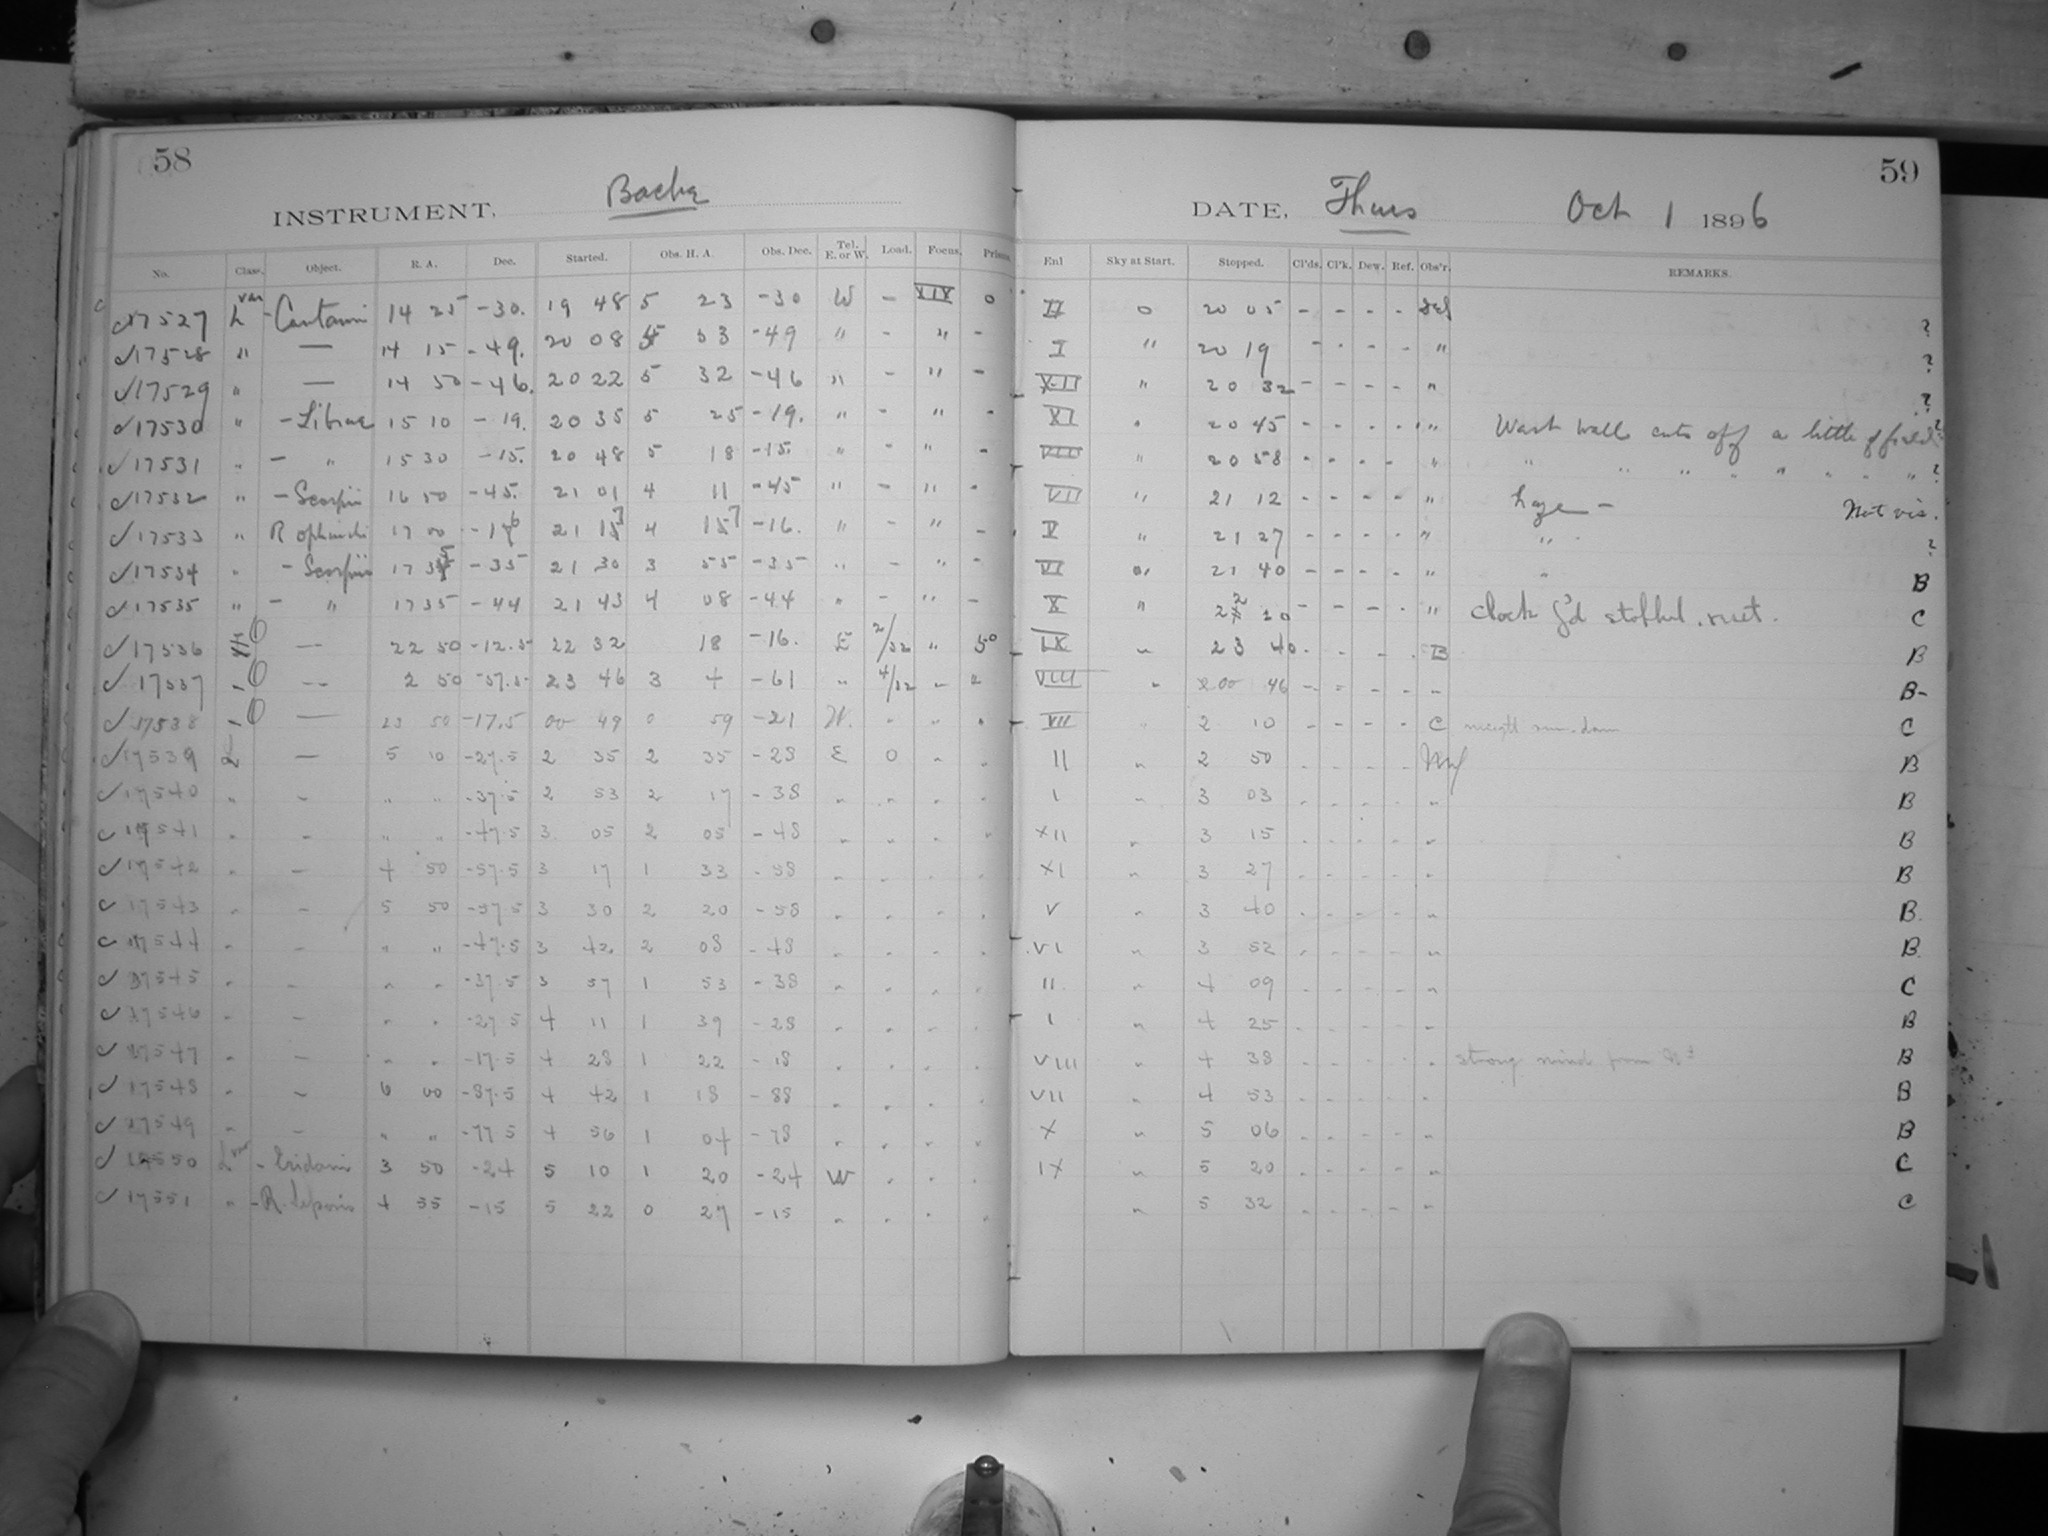 58
INSTRUMENT, Bache
No. Class. Object. R. A. Dec. Started. Obs. H. A. Obs. Dec. Tel. E. or W. Load. Focus. Prism
17527 L var - Centauri 14 25 -30. 19 48 5 23 -30 W - XIX 0
17528 " — 14 15 -49. 20 08 5 53 -49 " - " -
17529 " — 14 50 -46. 20 22 5 32 -46 " - " -
17530 " - Librae 15 10 -19. 20 35 5 25 -19. " - " -
17531 " - " 15 30 -15. 20 48 5 18 -15. " - " -
17532 " - Scorpii 16 50 -45. 21 01 4 11 -45 " - " -
17533 " R ophiuchi 17 00 -16 21 13 4 17 -16. " - " -
17534 " - Scorpii 17 35 -35 21 30 3 55 -35 " - " -
17535 " - " 17 35 -44 21 43 4 08 -44 " - " -
17536 — 22 50 -12.5 22 32 18 -16. E 2/32 " 50
17537 — 2 50 -57.5 23 46 3 4 -61 " 4/32 " "
17538 — 23 50 -17.5 00 49 0 59 -21 W. " " "
17539 L — 5 10 -27.5 2 35 2 35 -28 E 0 " "
17540 " - " " -37.5 2 53 2 17 -38 " " " "
17541 " - " " -47.5 3 05 2 05 -48 " " " "
17542 " - 4 50 -57.5 3 17 1 33 -58 " " " "
17543 " - 5 50 -57.5 3 30 2 20 -58 " " " "
17544 " - " " -47.5 3 42 2 08 -48 " " " "
17545 " - " " -37.5 3 57 1 53 -38 " " " "
17546 " - " " -27.5 4 11 1 39 -28 " " " "
17547 " - " " -17.5 4 28 1 22 -18 " " " "
17548 " - 6 00 -87.5 4 42 1 18 -88 " " " "
17549 " - " " -77.5 4 56 1 04 -78 " " " "
17550 L var - Eridani 3 50 -24 5 10 1 20 -24 W " " "
17551 " - R. leporis 4 55 -15 5 22 0 27 -15 " " " "
59
DATE, Thurs Oct 1 1896
Enl Sky at Start. Stopped. Cl'ds. Cl'k. Dew. Ref. Obs'r. REMARKS.
II 0 20 05 - - - - ?
I " 20 19 - - - - " ?
XII " 20 32 - - - - " ?
XI " 20 45 - - - - " Wash wall cuts off a little of field ?
VIII " 20 58 - - - - " " " " " " " " " ?
VII " 21 12 - - - - " haze - Not vis.
V " 21 27 - - - - " " ?
VI " 21 40 - - - - " " B
X " 22 20 - - - - " clock f'd stopped. reset. C
IX " 23 40 - - - - B B
VIII " 00 46 - - - - " B-
VII " 2 10 - - - - C C
II " 2 50 - - - - B
I " 3 03 - - - - " B
XII " 3 15 - - - - " B
XI " 3 27 - - - - " B
V " 3 40 - - - - " B.
VI " 3 52 - - - - " B.
II " 4 09 - - - - " C
I " 4 25 - - - - " B
VIII " 4 38 - - - - " strong wind from B
VII " 4 53 - - - - " B
X " 5 06 - - - - " B
IX " 5 20 - - - - " C
" 5 32 - - - - " C